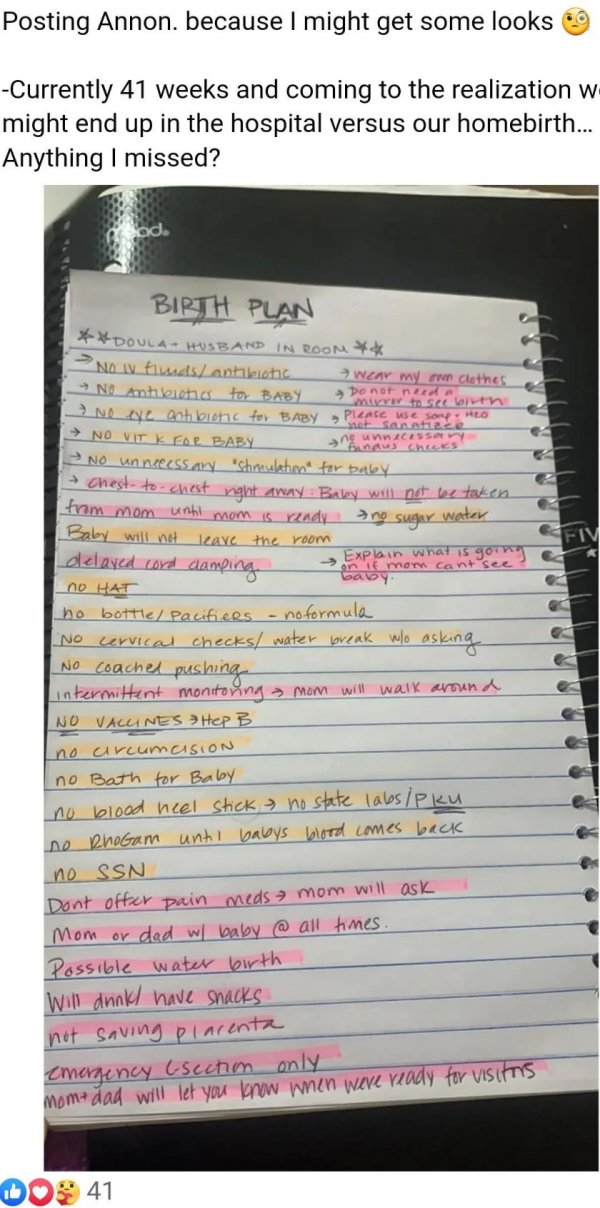 Posting Annon. because I might get some looks 🧐
-Currently 41 weeks and coming to the realization w
might end up in the hospital versus our homebirth...
Anything I missed?
ad.
BIRTH PLAN
**DOULA + HUSBAND IN ROOM **
→ NO IV fluids/antibiotic
→ wear my own clothes
→ NO Antibiotics for BABY
→ Do not need a
mirror to see birth
→ NO eye antibiotic for BABY
→ Please use soap + H2O
not sanatizer
→ NO VIT K FOR BABY
→ no unnecessary
fundus checks
→ No unnecessary "stimulation" for baby
→ chest-to-chest right away. Baby will not be taken
from mom until mom is ready
→ no sugar water
Baby will not leave the room
delayed cord clamping
→ Explain what is going
on if mom cant see
baby.
no HAT
no bottle/Pacifiers - no formula
No cervical checks/water break w/o asking
No coached pushing
intermittent monitoring → mom will walk around
NO VACCINES → HEP B
no circumcision
no Bath for Baby
no blood heel stick → no state labs/PKU
no RhoGam until babys blood comes back
no SSN
Dont offer pain meds → mom will ask
Mom or dad w/ baby @ all times.
Possible water birth
Will drink/have snacks
not saving placenta
emergency C-section only
mom+dad will let you know when were ready for visitors
FIV
41